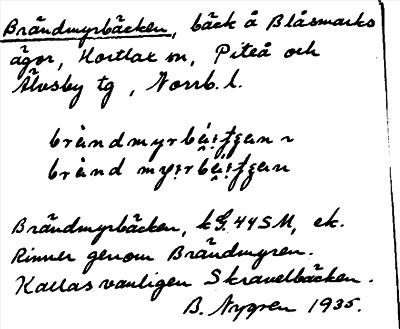 Brändmyrbäcken, bäck å Blåsmarks
ägor, Hortlax sn, Piteå och
Älvsby tg, Norrb. l.
brändmyrbäcken, k G. 44 SM, ek.
Rinner genom Brändmyren.
Kallas vanligen Skravelbäcken.
B. Nygren 1935.